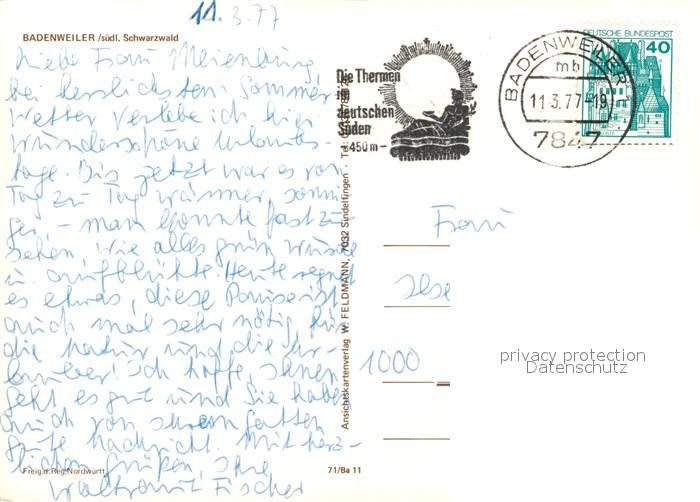 11.3.77
BADENWEILER /südl. Schwarzwald
Liebe Frau Meienburg,
bei herrlichstem Sommer-
wetter verlebe ich hier
wunderschöne Urlaubs-
tage. Bis jetzt war es von
Tag zu Tag wärmer, sonni-
ger, - man konnte fast zu-
sehen, wie alles grün wurde
u. aufblühte. Heute regnet
es etwas, diese Pause ist
auch mal sehr nötig für
die Natur und die Ur-
lauber! Ich hoffe, Ihnen
geht es gut und Sie haben
auch von Ihrem Gatten
gute Nachricht. Mit herz-
lichen Grüßen, Ihre
Waltraut Fischer
Freig.d.Reg.Nordwürtt.
71/Ba 11
Ansichtskartenverlag W. FELDMANN, 7032 Sindelfingen · Tel.
Die Thermen
im
deutschen
Süden
450 m
BADENWEILER
mb
11.3.77-19
7847
DEUTSCHE BUNDESPOST
40
Frau
Ilse
1000
privacy protection
Datenschutz